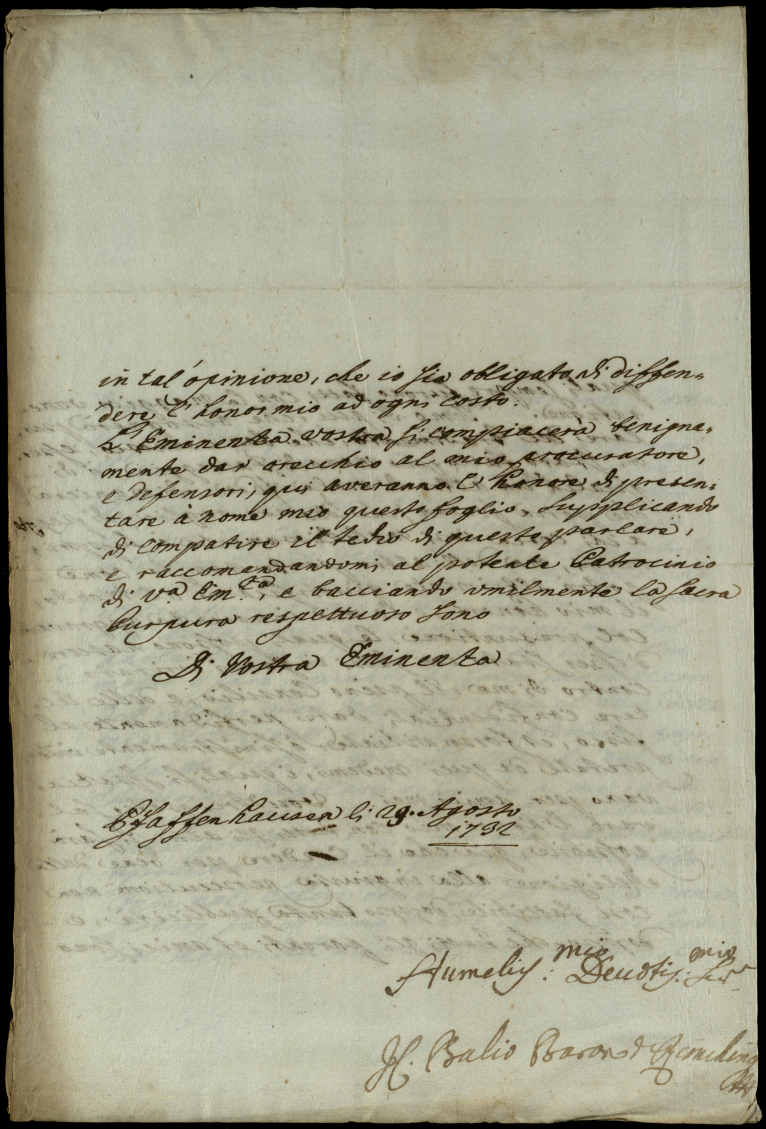 in tal' opinione, che io sia obligato di diffen=
dere l' honor mio ad ogni costo.
L' Eminenza vostra si compiacerà benigna=
mente dar orecchio al mio procuratore,
e defensori, qui averanno l' honore di presen=
tare à nome mio questo foglio. Supplicando
di compatire il tedio di questo parlare,
e raccomandandomi al potente Patrocinio
di V.ra Em.za, e bacciando umilmente la sacra
Purpura respettuoso sono
Di Vostra Eminenza
Pfaffenhausen li 29. Agosto
1732
Humelis:mo Devotis:mo Ser.r
Il Balio Barone d